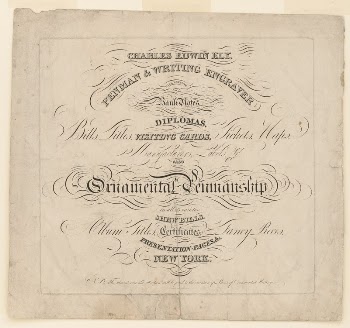 CHARLES EDWIN ELY,
PENMAN & WRITING ENGRAVER
Bank Notes
DIPLOMAS,
Bills, Titles, VISITING CARDS, Tickets, Maps,
Manufacturers Labels, &c.
ALSO
Ornamental Penmanship
SHEW BILLS,
Album Titles, Certificates, Fancy Pieces,
PRESENTATION PAGES, &
NEW YORK.